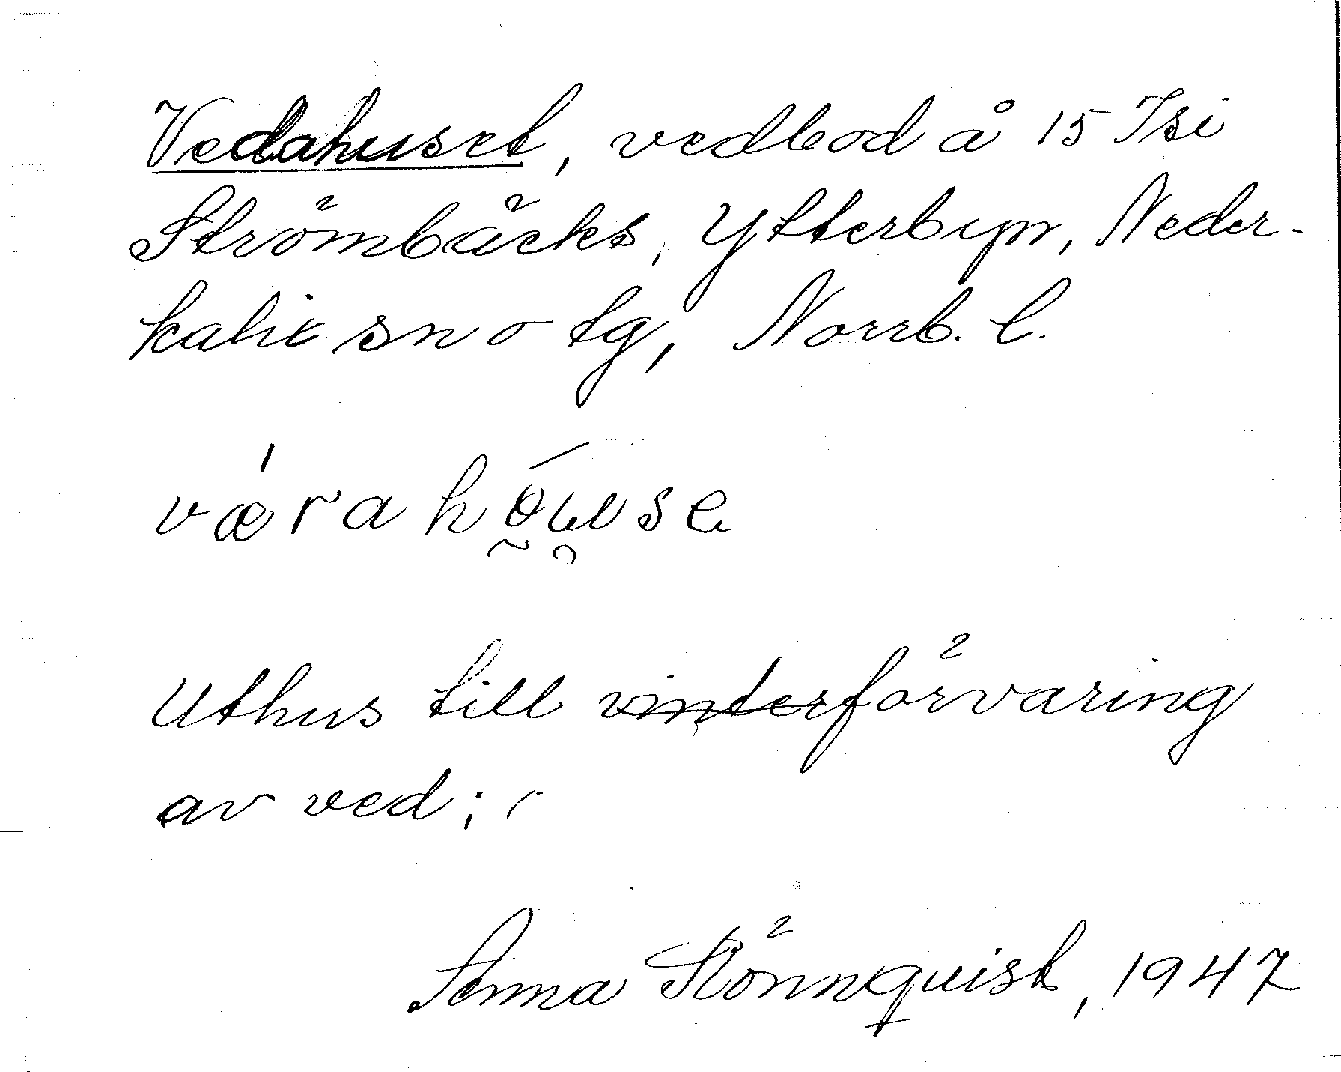 Vedahuset, vedbod å 15 Isi
Strömbäcks, Ytterbyn, Neder-
kalix sn o tg, Norrb. l.
Uthus till vinterförvaring
av ved;
Anna Rönnquist, 1947